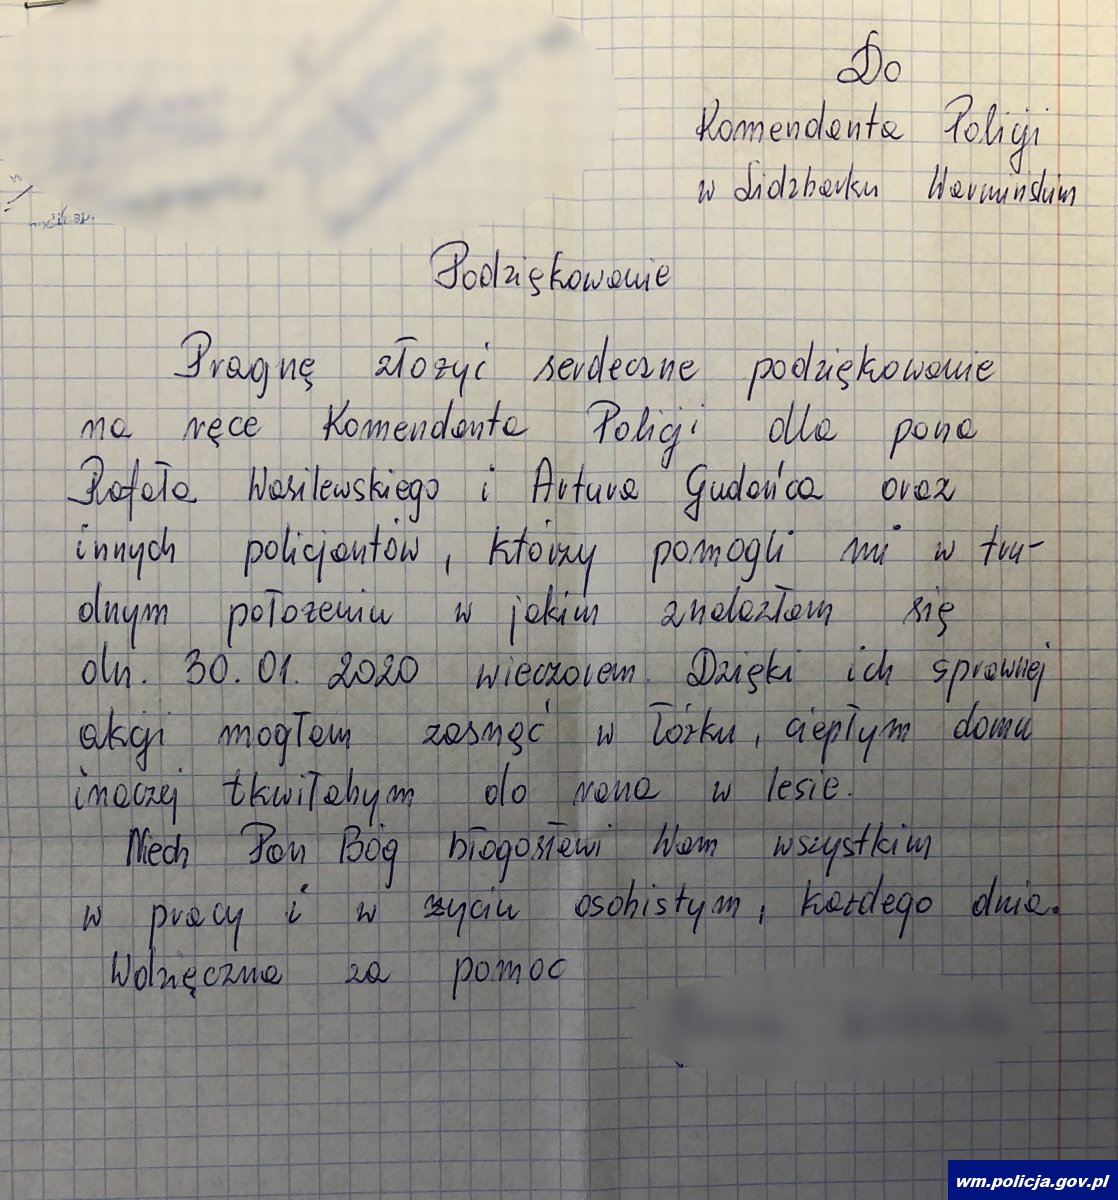 Do
Komendanta Policji
w Lidzbarku Warmińskim
Podziękowanie
Pragnę złożyć serdeczne podziękowanie
na ręce Komendanta Policji dla pana
Rafała Wasilewskiego i Artura Gudańca oraz
innych policjantów, którzy pomogli mi w tru-
dnym położeniu w jakim znalazłam się
dn. 30.01.2020 wieczorem. Dzięki ich sprawnej
akcji mogłam zasnąć w łóżku, ciepłym domu
inaczej tkwiłabym do rana w lesie.
Niech Pan Bóg błogosławi Wam wszystkim
w pracy i w życiu osobistym, każdego dnia.
Wdzięczna za pomoc
wm.policja.gov.pl